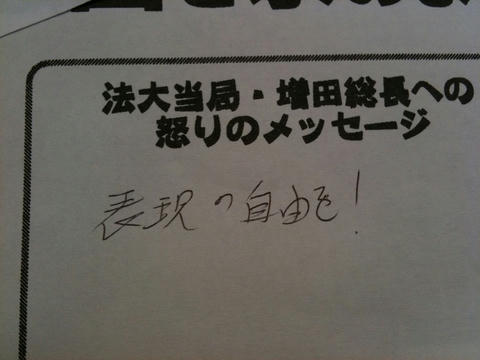 法大当局・増田総長への
怒りのメッセージ
表現の自由を!